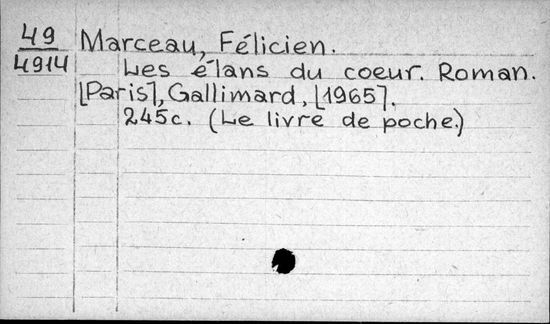 49
4914
Marceau, Félicien.
Les élans du coeur. Roman.
[Paris], Gallimard, [1965].
245c. (Le livre de poche.)